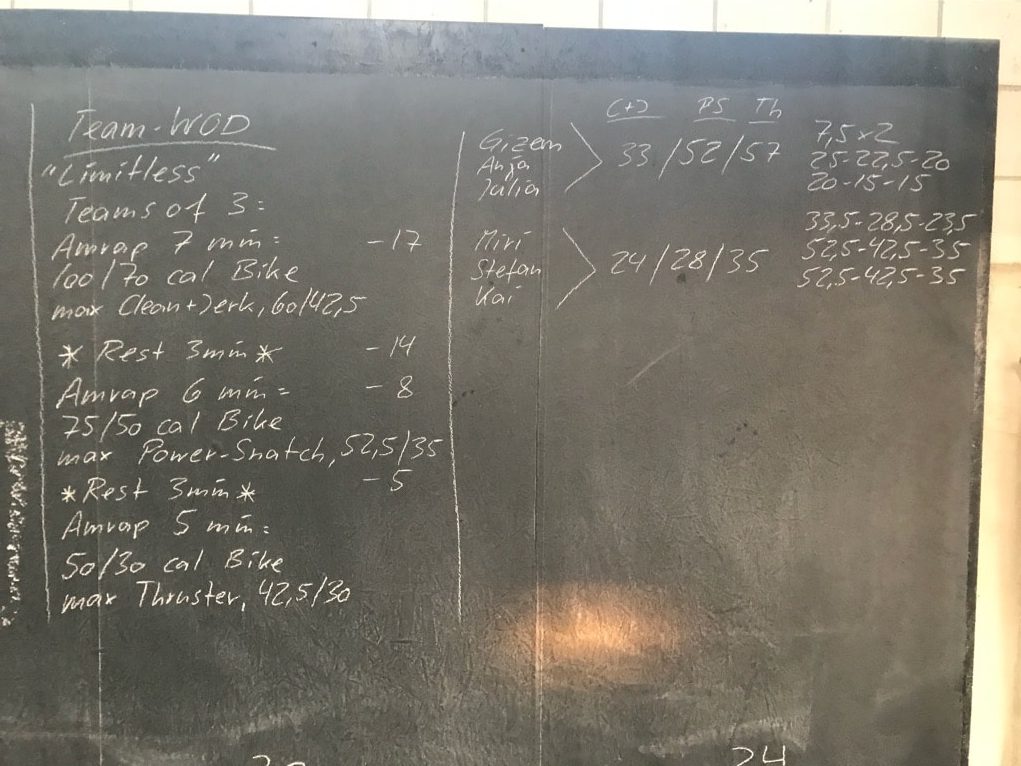 Team-WOD
"Limitless"
Teams of 3:
Amrap 7 min: -17
100/70 cal Bike
max Clean+Jerk, 60/42,5
* Rest 3min * -14
Amrap 6 min: -8
75/50 cal Bike
max Power-Snatch, 52,5/35
* Rest 3min * -5
Amrap 5 min:
50/30 cal Bike
max Thruster, 42,5/30
C+J PS Th
Gizem
Anja
Julia
33/52/57
7,5x2
25-22,5-20
20-15-15
Miri
Stefan
Kai
24/28/35
33,5-28,5-23,5
52,5-42,5-35
52,5-42,5-35
24